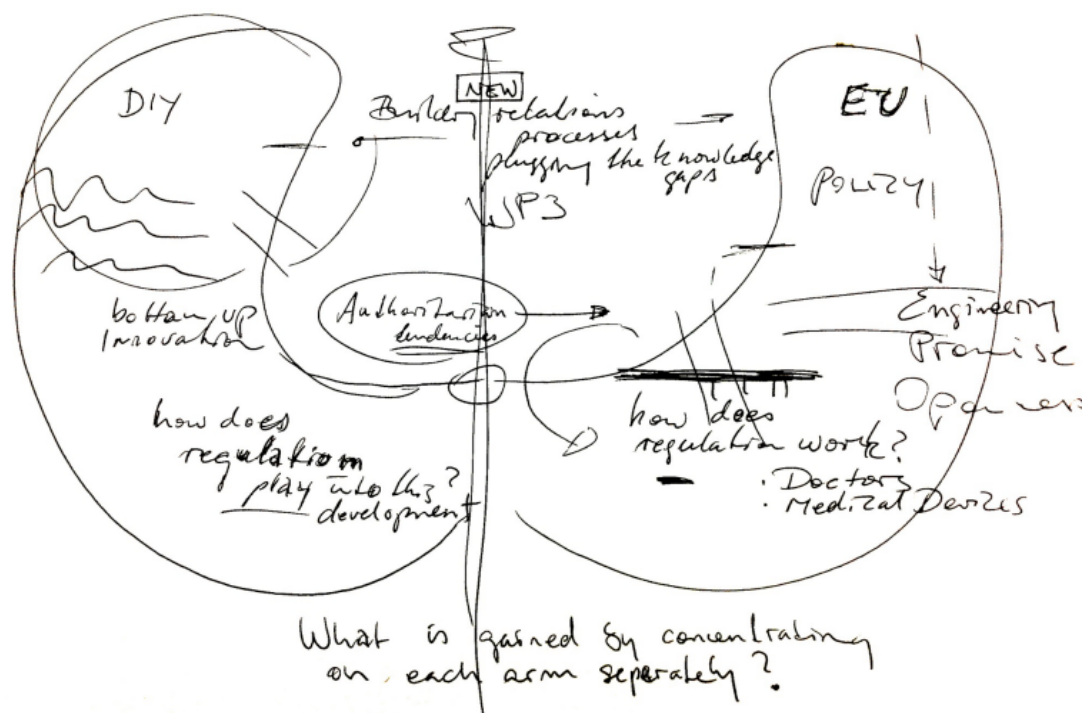 DIY
NEW
Building relations
processes
plugging the knowledge
gaps
WP3
EU
POLICY
bottom up
Innovation
Authoritarian
tendencies
Engineering
Promise
Openness
how does
regulation
play into this?
development
how does
regulation work?
· Doctors
· Medical Devices
What is gained by concentrating
on each arm seperately?